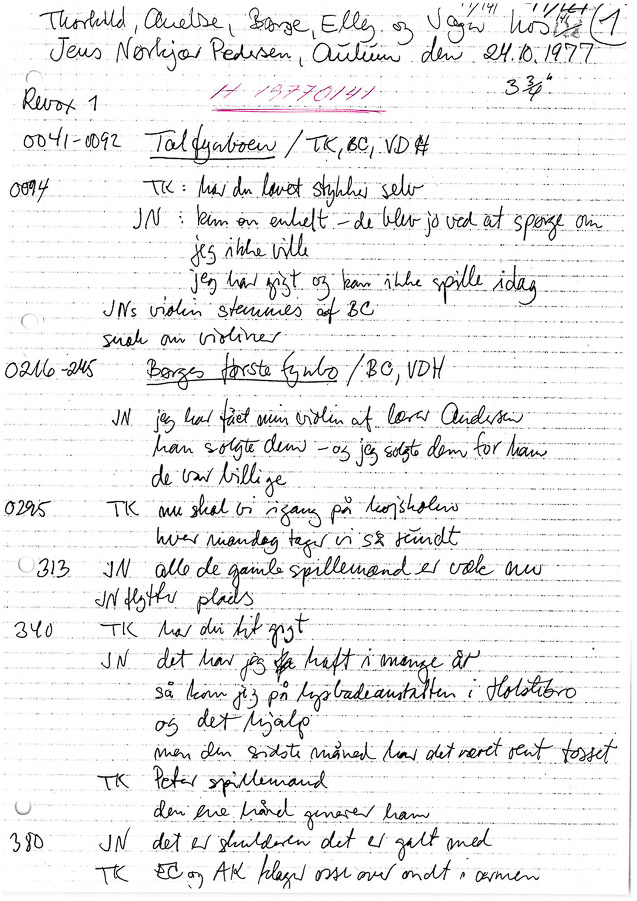 Thorkild, Anelise, Børge, Elly og Vagn hos 1
Jens Nørkjær Pedersen, Aulum den 24.10.1977
H 19770141
3 3/4"
Revox 1
0041-0092 Talfynboen / TK, BC, VDH
0094 TK : har du lavet stykker selv
JN : kun en enkelt - de blev jo ved at spørge om
jeg ikke ville
jeg har gigt og kan ikke spille idag
JNs violin stemmes af BC
snak om violiner
0216-245 Børges første fynbo / BC, VDH
JN jeg har fået min violin af lærer Andersen
han solgte dem - og jeg solgte dem for ham
de var billige
0295 TK nu skal vi igang på højskolen
hver mandag tager vi så rundt
313 JN alle de gamle spillemænd er væk nu
JN flytter plads
340 TK har du tit gigt
JN det har jeg haft i mange år
så kom jeg på lysbadeanstalten i Holstebro
og det hjalp
men den sidste måned har det været rent tosset
TK Peter spillemand
den ene hånd generer ham
380 JN det er skulderen det er galt med
TK EC og AK klager osse over ondt i armen